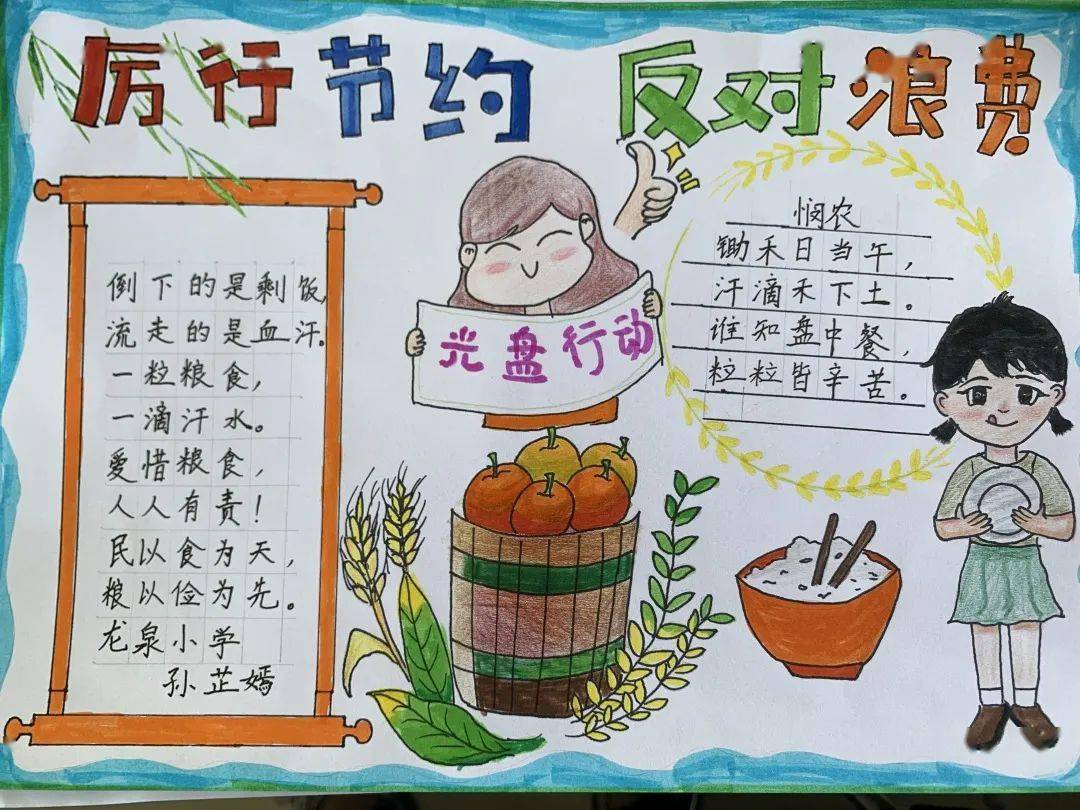 厉行节约 反对浪费
倒下的是剩饭,
流走的是血汗.
一粒粮食,
一滴汗水。
爱惜粮食,
人人有责!
民以食为天,
粮以俭为先。
龙泉小学
孙芷嫣
光盘行动
悯农
锄禾日当午,
汗滴禾下土。
谁知盘中餐,
粒粒皆辛苦。